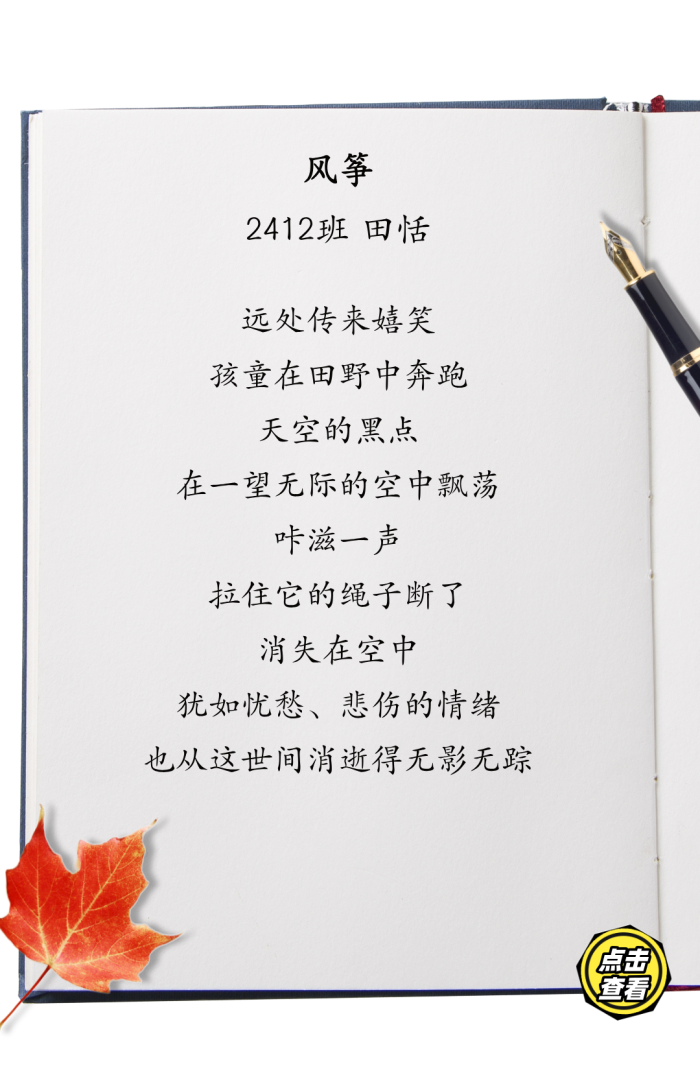 风筝
2412班 田恬
远处传来嬉笑
孩童在田野中奔跑
天空的黑点
在一望无际的空中飘荡
咔滋一声
拉住它的绳子断了
消失在空中
犹如忧愁、悲伤的情绪
也从这世间消逝得无影无踪
点击
查看